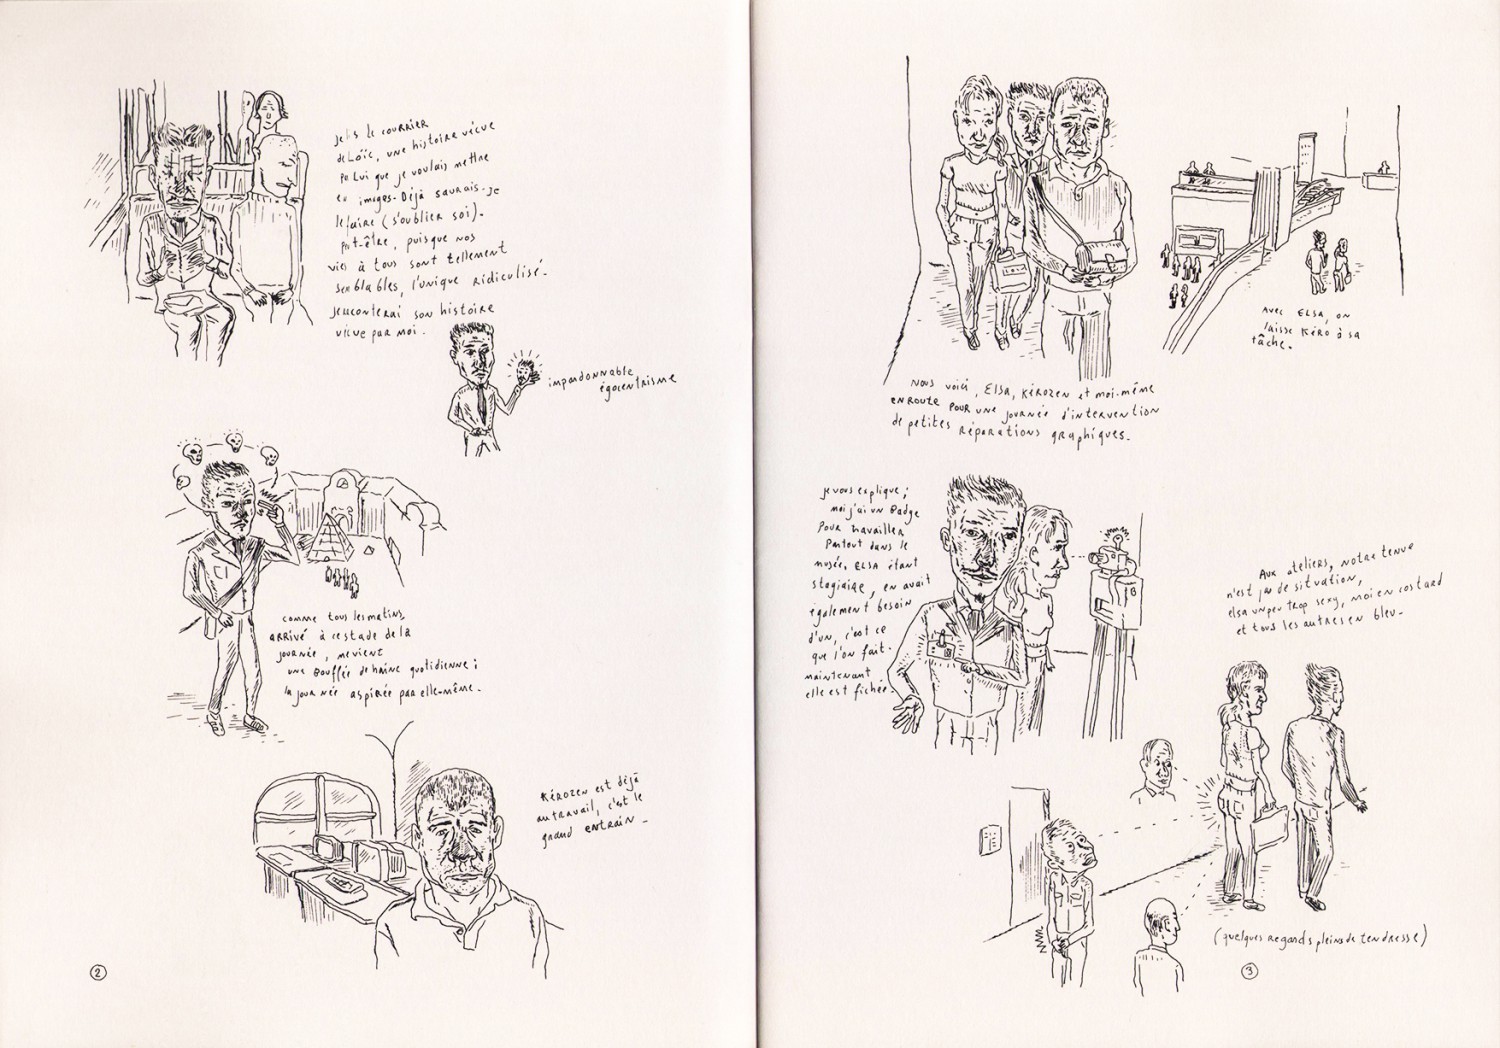 je lis le courrier
de Loïc, une histoire vécue
par lui que je voulais mettre
en images. Déjà saurais-je
le faire (s'oublier soi).
peut-être, puisque nos
vies à tous sont tellement
semblables, l'unique ridiculisé.
je raconterai son histoire
vécue par moi.
impardonnable
égocentrisme
comme tous les matins,
arrivé à ce stade de la
journée, me vient
une bouffée de haine quotidienne ;
la journée aspirée par elle-même.
Kérozen est déjà
au travail, c'est le
grand entrain.
2
Nous voici, Elsa, Kérozen et moi-même
en route pour une journée d'intervention
de petites réparations graphiques.
avec Elsa, on
laisse Kéro à sa
tâche.
je vous explique ;
moi j'ai un badge
pour travailler
partout dans le
musée, Elsa étant
stagiaire, en avait
également besoin
d'un, c'est ce
que l'on fait.
maintenant
elle est fichée.
Aux ateliers, notre tenue
n'est pas de situation,
elsa un peu trop sexy, moi en costard
et tous les autres en bleu.
(quelques regards pleins de tendresse)
3